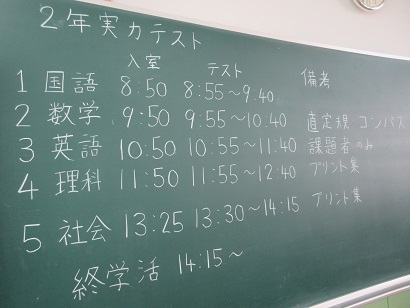 2年実力テスト
入室 テスト 備考
1 国語 8:50 8:55～9:40
2 数学 9:50 9:55～10:40 直定規 コンパス
3 英語 10:50 10:55～11:40 課題者のみ
4 理科 11:50 11:55～12:40 プリント集
5 社会 13:25 13:30～14:15 プリント集
終学活 14:15～